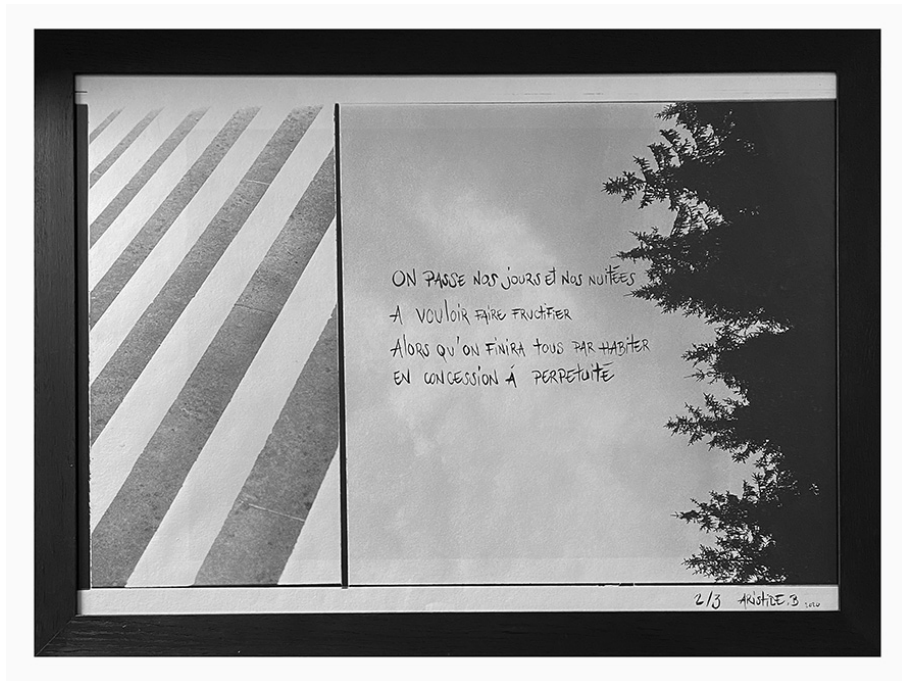 ON PASSE NOS JOURS ET NOS NUITÉES
A VOULOIR FAIRE FRUCTIFIER
ALORS QU'ON FINIRA TOUS PAR HABITER
EN CONCESSION Á PERPETUITÉ
2/3 ARISTIDE.B